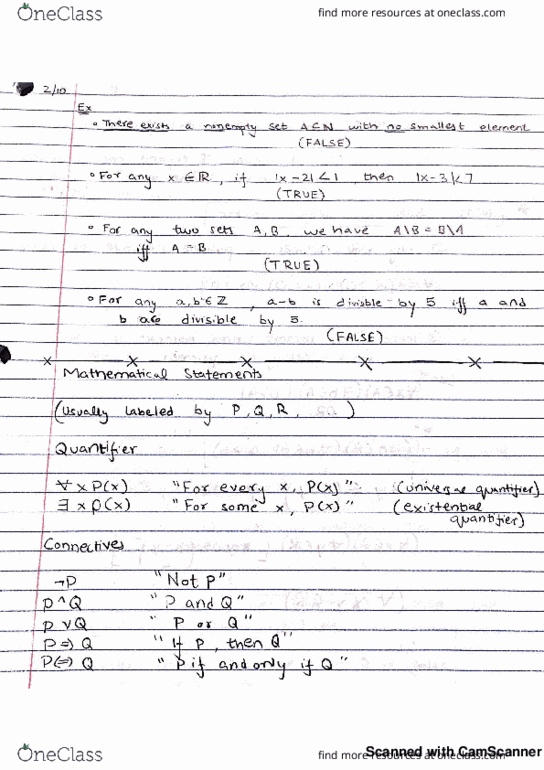 OneClass
find more resources at oneclass.com
2/10
Ex
• There exists a nonempty set A⊆N with no smallest element
(FALSE)
• For any x ∈ ℝ, if |x-2|<1 then |x-3|<7
(TRUE)
• For any two sets A,B we have A\B = B\A
iff A = B
(TRUE)
• For any a,b ∈ ℤ, a-b is divisble by 5 iff a and
b are divisible by 5.
(FALSE)
Mathematical Statements
(Usually labeled by P, Q, R, )
Quantifier
∀ x P(x) "For every x, P(x)" (universal quantifier)
∃ x P(x) "For some x, P(x)" (existential
quantifier)
Connectives
¬P "Not P"
P ^ Q "P and Q"
P v Q "P or Q"
P => Q "If P, then Q"
P<=> Q "P if and only if Q"
OneClass
find more resources at oneclass.com
Scanned with CamScanner